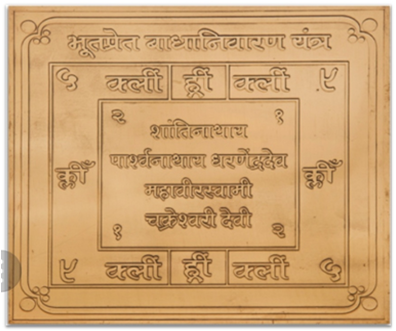 भूतप्रेत बाधानिवारण यंत्र
५ क्लीं ह्रीं क्लीं ९
२ १
शांतिनाथाय
पार्श्वनाथाय धरणेंद्रदेव
क्लीँ क्लीँ
महावीरस्वामी
चक्रेश्वरी देवी
१ २
९ क्लीं ह्रीं क्लीं ५